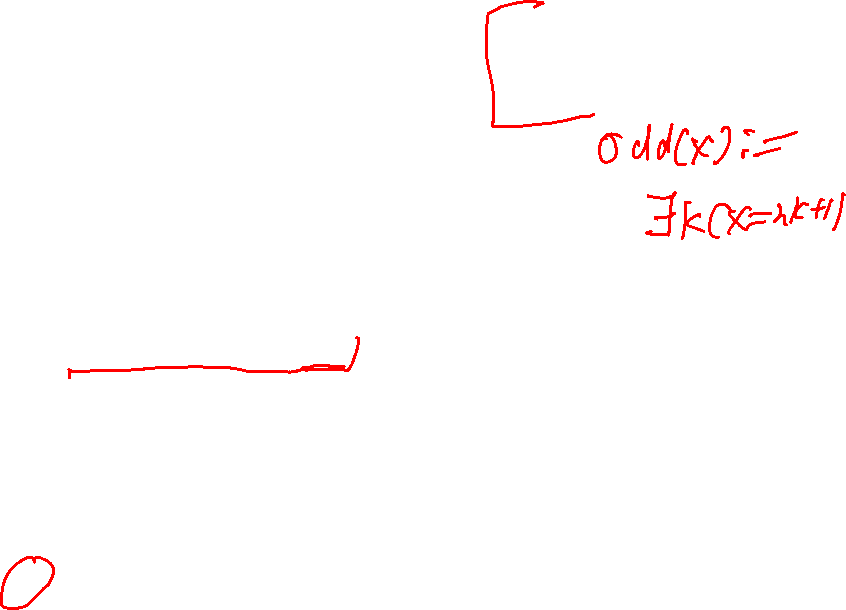 odd(x) :=
∃k(x=2k+1)